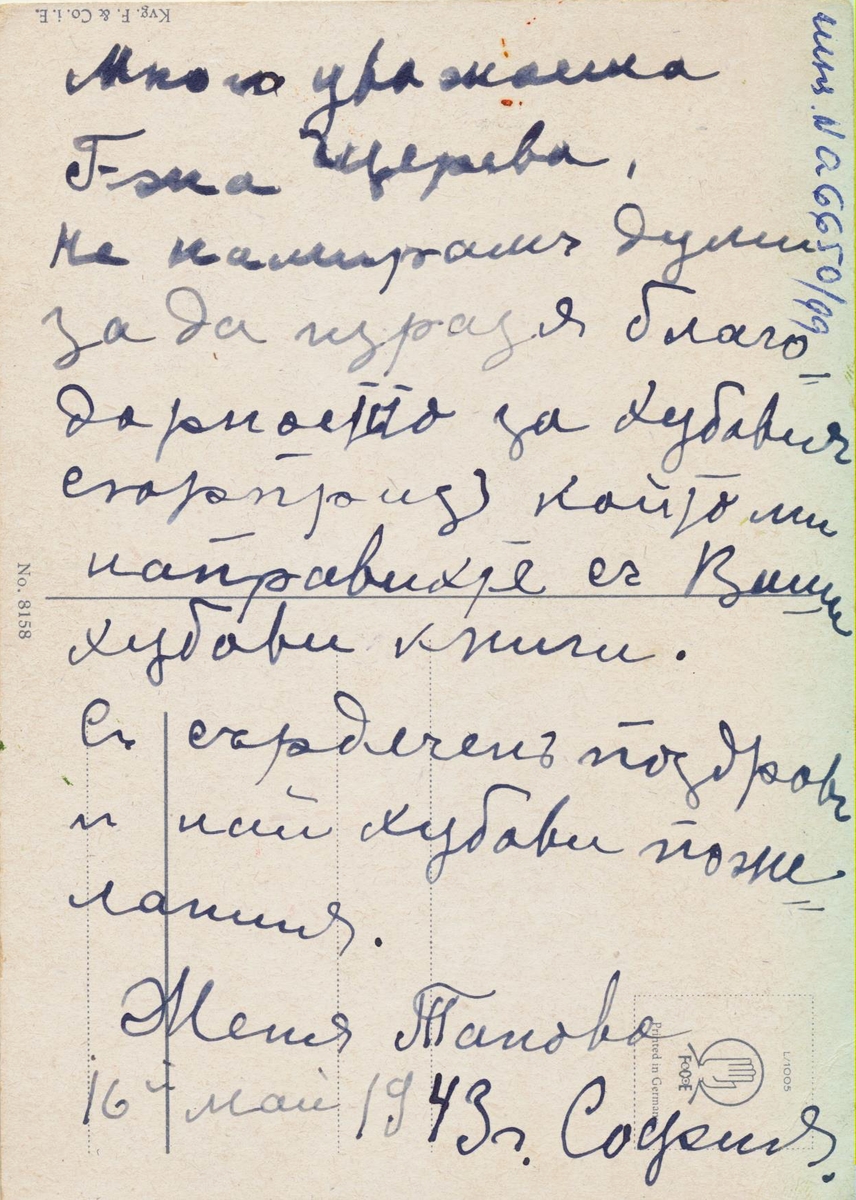 Много уважаема
Г-жа Щерева,
Не намирамъ думи
за да изразя благо=
дарността за хубавия
сюрприз който ми
направихте съ Ваши
хубави книги.
Съ сърдеченъ поздравъ
и най хубави поже=
лания.
Женя Танова
16й май 1943г. София.
инв. № 6650/99
Kvg. F. & Co. i. E.
No. 8158
L/1005
FOGE
Printed in Germany